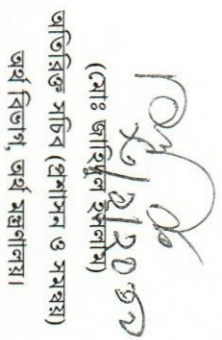 (মোঃ জাহিদুল ইসলাম)
অতিরিক্ত সচিব (প্রশাসন ও সমন্বয়)
অর্থ বিভাগ, অর্থ মন্ত্রণালয়।